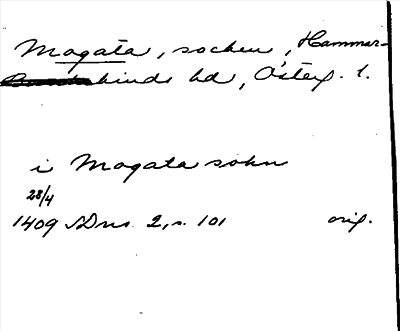 Mogata, socken, Hammar-
kinds hd, Österg. l.
i Mogata sokn
28/4
1409 SDns. 2, s. 101 orig.